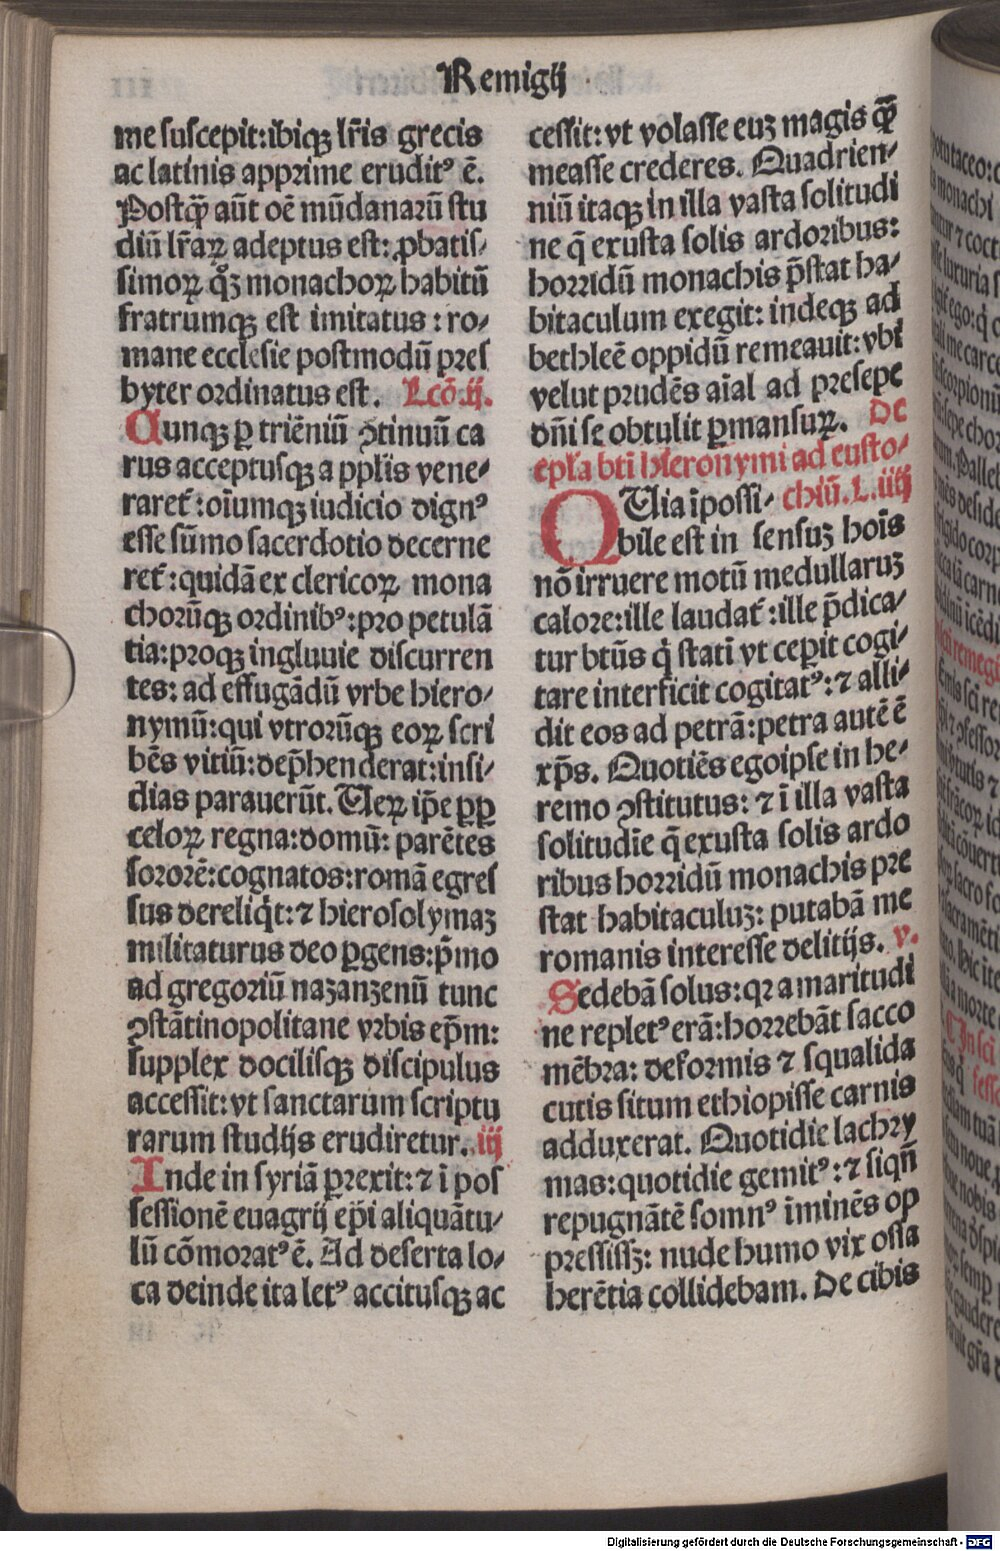 Remigij
me suscepit:ibiqꝫ lr̄is grecis
ac latinis apprime eruditꝰ ē.
Postq̄ꝫ aūt oē mūdanarū stu
diū lr̄aꝝ adeptus est: ꝓbatis⸗
simoꝝ qͦꝫ monachoꝝ habitū
fratrumqꝫ est imitatus : ro⸗
mane ecclesie postmodū pres
byter ordinatus est. Lcō.ij.
Cunqꝫ ꝑ triēniū ꝯtinuū ca
rus acceptusqꝫ a ppl̄is vene⸗
raret̄ :oīumqꝫ iudicio dignꝰ
esse sūmo sacerdotio decerne
ret̄ :quidā ex clericoꝝ mona
chorūqꝫ ordinibꝰ:pro petulā
tia:proqꝫ ingluuie discurren
tes: ad effugādū vrbe hiero⸗
nymū:qui vtrorūqꝫ eoꝝ scri
bēs vitiū:dep̄henderat:insi⸗
dias parauerūt. Ueꝝ ip̄e ꝓp
celoꝝ regna:domū: parētes
sororē:cognatos:romā egres
sus dereliq̇t:⁊ hierosolymaꝫ
militaturus deo ꝑgens:p̄mo
ad gregoriū nazanzenū tunc
ꝯstātinopolitane vrbis ep̄m:
supplex docilisqꝫ discipulus
accessit:vt sanctarum scriptu
rarum studijs erudiretur. iij
Inde in syriā ꝑrexit:⁊ ī pos
sessionē euagrij ep̄i aliquātu⸗
lū cōmoratꝰ ē. Ad deserta lo⸗
ca deinde ita letꝰ accitusqꝫ ac
cessit: vt volasse euꝫ magis q̄ꝫ
measse crederes. Quadrien⸗
niū itaqꝫ in illa vasta solitudi
ne q̄ exusta solis ardoribus:
horridū monachis p̄stat ha⸗
bitaculum exegit: indeqꝫ ad
bethleē oppidū remeauit: vbi
velut prudēs aīal ad presepe
dn̄i se obtulit ꝑmansuꝝ. De
epl̄a btī hieronymi ad eusto⸗
chiū. L.iiij
QUia īpossi⸗
bile est in sensuꝫ hoīs
nō irruere motū medullaruꝫ
calore:ille laudat̄ :ille p̄dica⸗
tur btūs q̇ statī vt ceperit cogi⸗
tare interficit cogitatꝰ: ⁊ alli⸗
dit eos ad petrā:petra autē ē
xp̄s. Quotiēs egoipse in he⸗
remo ꝯstitutus: ⁊ ī illa vasta
solitudīe q̄ exusta solis ardo
ribus horridū monachis pre
stat habitaculuꝫ: putabā me
romanis interesse delitijs. v.
Sedebā solus:qꝛ amaritudi
ne repletꝰ erā:horrebāt sacco
mēbra: deformis ⁊ squalida
cutis situm ethiopisse carnis
adduxerat. Quotidie lachry
mas:quotidie gemitꝰ: ⁊ siqn̄
repugnātē somnꝰ īminēs op
pressissꝫ: nude humo vix ossa
herētia collidebam. De cibis
Digitalisierung gefördert durch die Deutsche Forschungsgemeinschaft - DFG